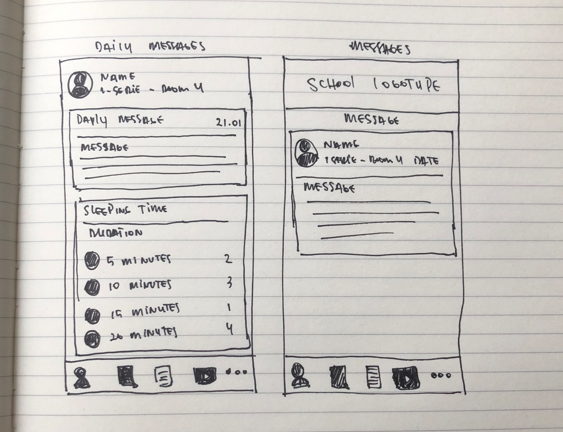 DAILY MESSAGES
NAME
1-SERIE - ROOM 4
DAYLY MESSAGE 21.01
MESSAGE
SLEEPING TIME
DURATION
5 MINUTES 2
10 MINUTES 3
15 MINUTES 1
20 MINUTES 4
MESSAGES
SCHOOL LOGOTYPE
MESSAGE
NAME
1 SERIE - ROOM 4 DATE
MESSAGE